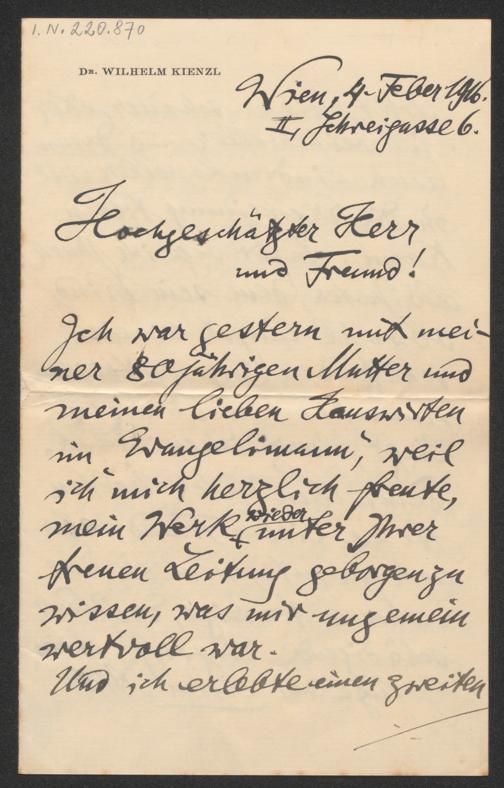 I. N. 220.870
DR. WILHELM KIENZL
Wien, 4. Feber 1916.
II, Schreigasse 6.
Hochgeschätzter Herr
und Freund!
Ich war gestern mit mei-
ner 80jährigen Mutter und
meinen lieben Hauswirten
im „Evangelimann“, weil
ich mich herzlich freute,
mein Werk wieder unter Ihrer
treuen Leitung geborgen zu
wissen, was mir ungemein
wertvoll war.
Und ich erlebte einen zweiten